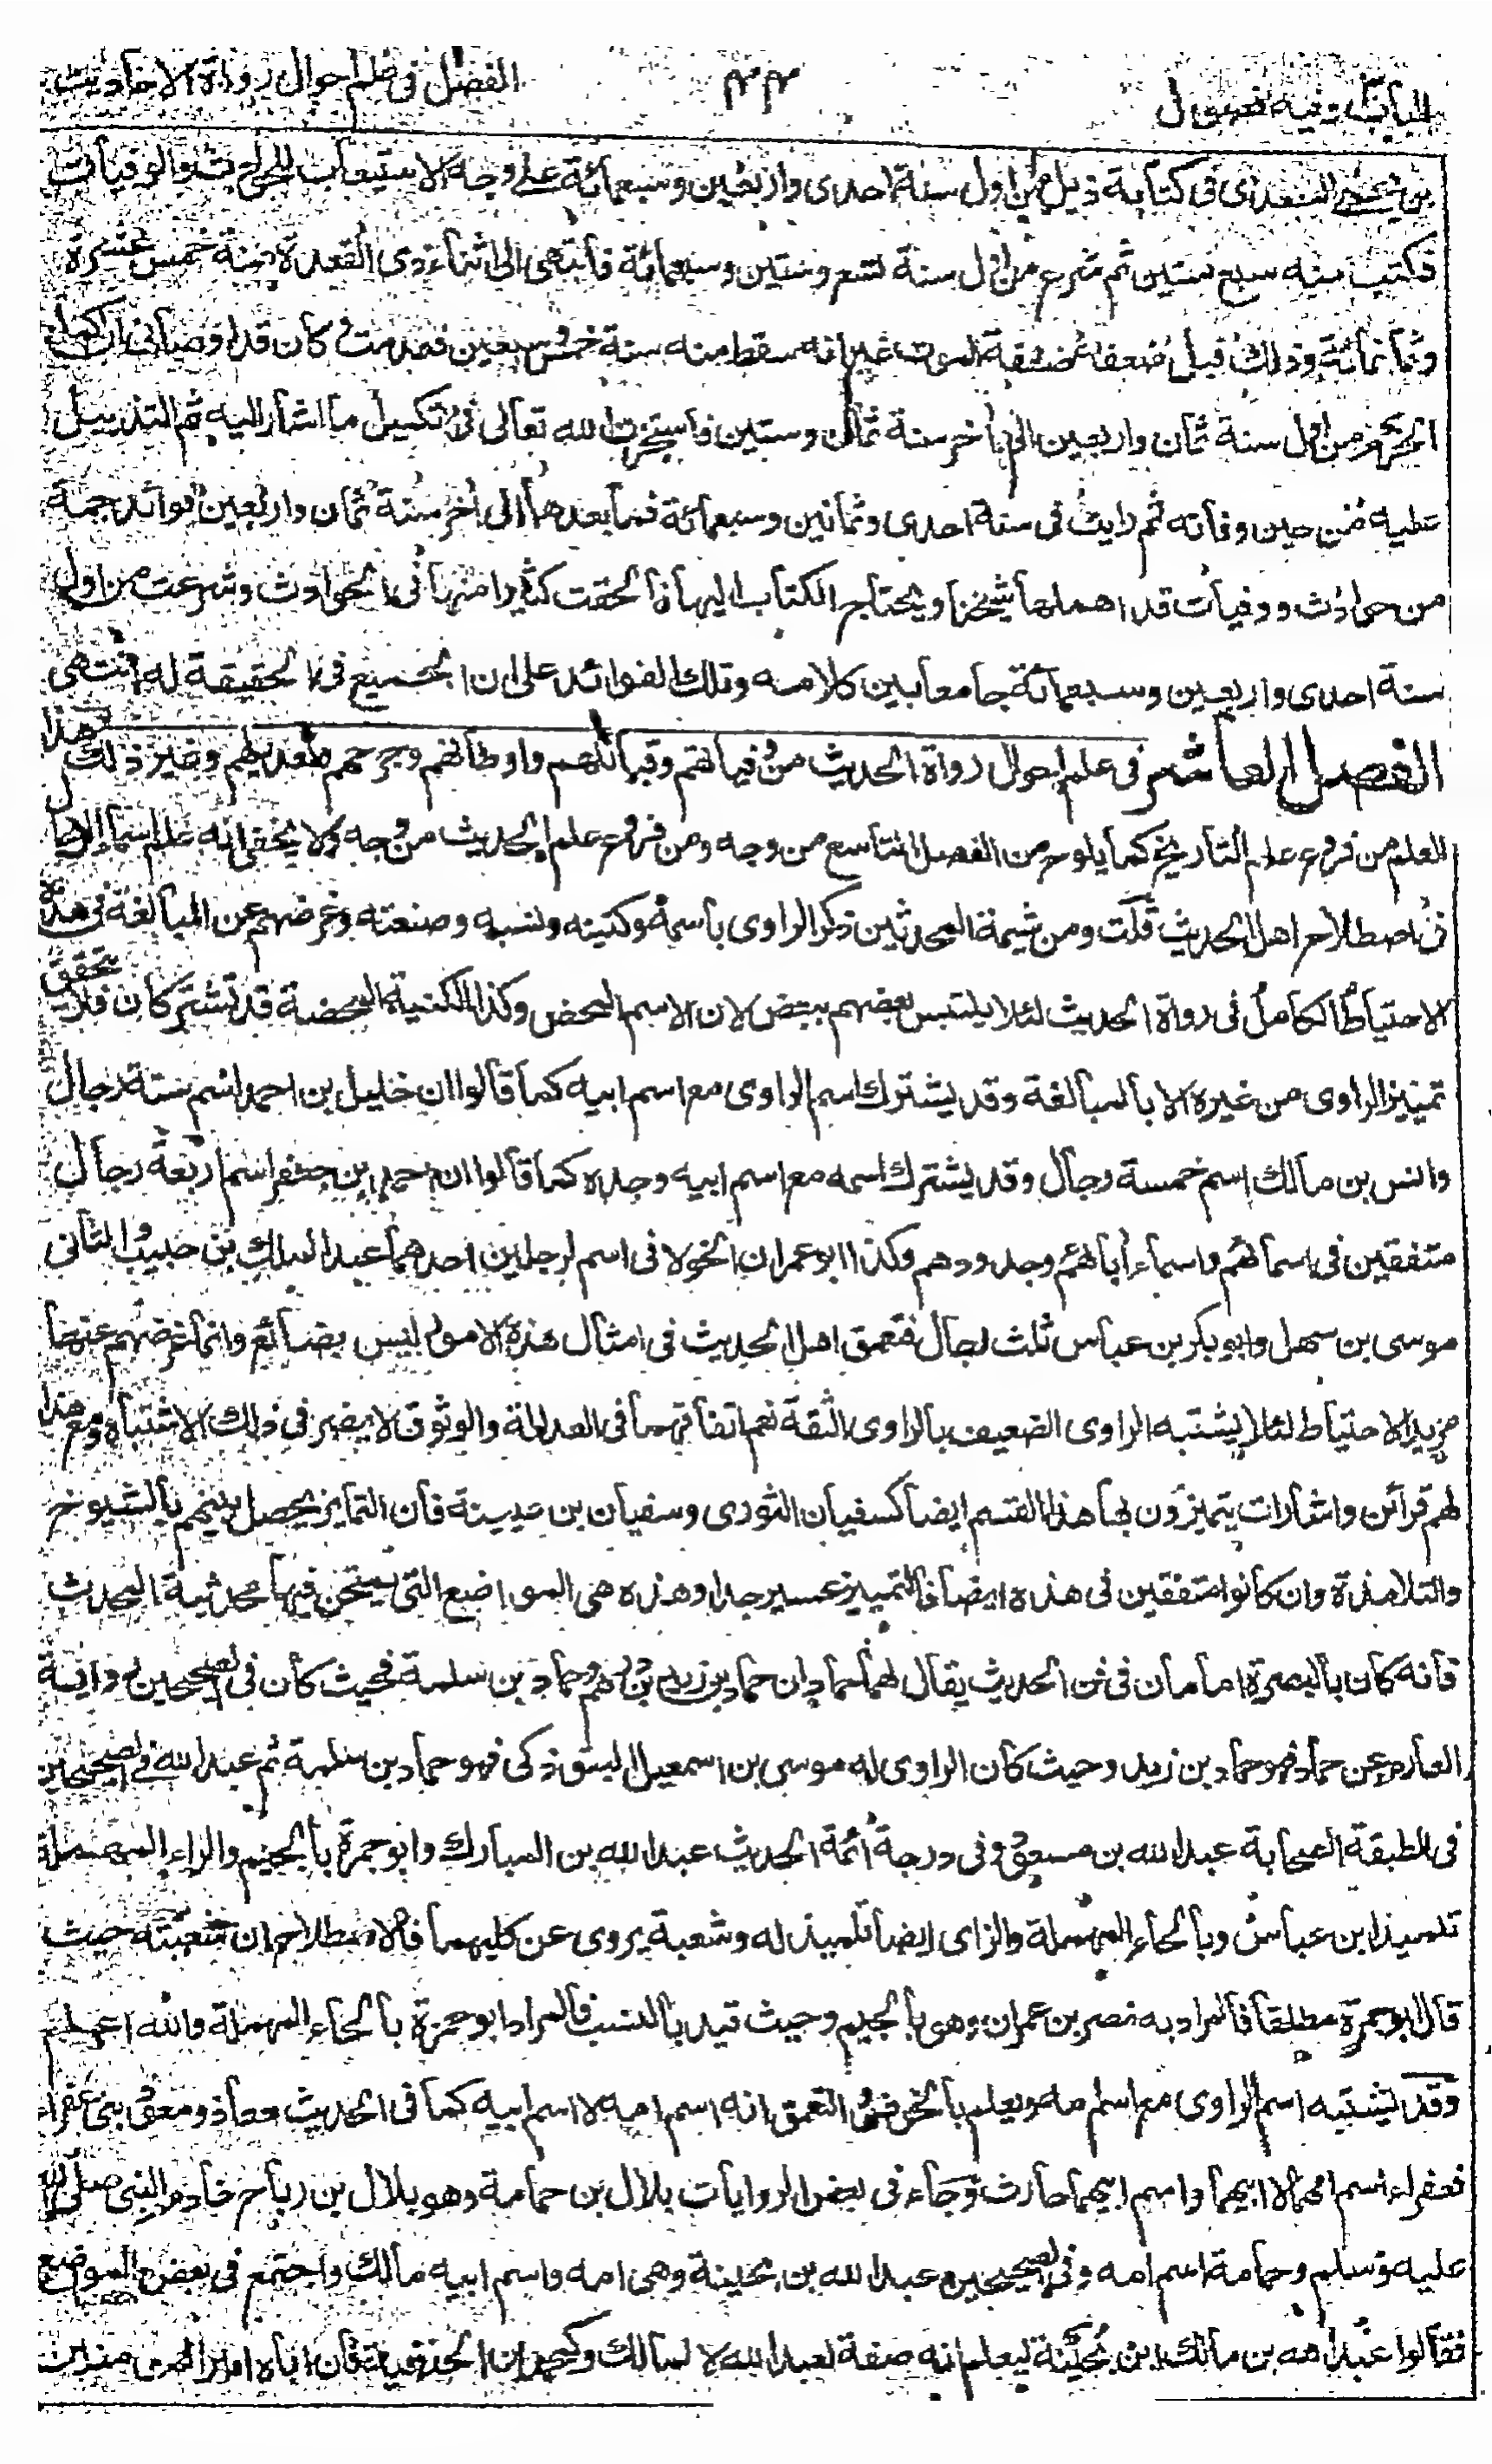 الباب فيه فصول ٣٣ الفصل فى علم احوال رواة الاحاديث
بن السعدى فى كتابة ذيل من اول سنة احدى واربعين وسبعمائة على وجه الاستيعاب للحوادث والوفيات
فكتب منه سبع سنين ثم شرع من اول سنة تسع وستين وسبعمائة فانتهى الى اثناء ذى القعدة سنة خمس عشرة
وثمانمائة وذلك قبيل ضعفه ضعفة الموت غير انه سقط منه سنة خمس سبعين فعدمت كان قد اوصانى ان اكمل
الخرم من اول سنة ثمان واربعين الى اخر سنة ثمان وستين فاستخرت الله تعالى فى تكميل ما اشار اليه ثم التذييل
عليه من حين وفاته ثم رايت فى سنة احدى وثمانين وسبعمائة فما بعدها الى اخر سنة ثمان واربعين فوائد جمة
من حوادث ووفيات قد اهملها شيخنا ويحتاج الكتاب اليها فالحقت كثيرا منها فى الحوادث وشرعت من اول
سنة احدى واربعين وسبعمائة جامعا بين كلامه وتلك الفوائد على ان الجميع فى الحقيقة له انتهى
الفصل العاشر فى علم احوال رواة الحديث من وفياتهم وقبائلهم واوطانهم وجرحهم وتعديلهم وغير ذلك هذا
العلم من فروع علم التاريخ كما يلوح من الفصل التاسع من وجه ومن فروع علم الحديث من وجه ولا يخفى انه علم اسماء الرجال
فى اصطلاح اهل الحديث قلت ومن شيمة المحدثين ذكر الراوى باسمه وكنيته ونسبه وصنعته وغرضهم عن المبالغة فى هذا
الاحتياط الكامل فى رواة الحديث لئلا يلتبس بعضهم ببعض لان الاسم المحض وكذا الكنية المحضة قد تشتركان فلا يتحقق
تمييز الراوى من غيره الا بالمبالغة وقد يشترك اسم الراوى مع اسم ابيه كما قالوا ان خليل بن احمد اسم ستة رجال
وانس بن مالك اسم خمسة رجال وقد يشترك اسمه مع اسم ابيه وجده كما قالوا ان احمد بن جعفر اسم اربعة رجال
متفقين فى اسمائهم واسماء ابائهم وجدودهم وكذا ابو عمران الخولانى اسم لرجلين احدهما عبد الملك بن حبيب والثانى
موسى بن سهل وابو بكر بن عباس ثلث رجال فتعمق اهل الحديث فى امثال هذه الامور ليس بضائع وانما غرضهم عنها
مزيد الاحتياط لئلا يشتبه الراوى الضعيف بالراوى الثقة نعم اتفاقهما فى العدالة والوثوق لا يضر فى ذلك الاشتباه ومع هذا
لهم قرائن واشارات يتميزون بها هذا القسم ايضا كسفيان الثورى وسفيان بن عيينة فان التمايز يحصل بينهم بالشيوخ
والتلامذة وان كانوا متفقين فى هذه ايضا فالتمييز عسير جدا وهذه هى المواضع التى يمتحن فيها محدثية المحدث
فانه كان بالبصرة امامان فى فن الحديث يقال لهما حمادان حماد بن زيد بن درهم وحماد بن سلمة فحيث كان فى الصحيحين رواية
العارم عن حماد فهو حماد بن زيد وحيث كان الراوى له موسى بن اسمعيل التبوذكى فهو حماد بن سلمة ثم عبد الله فى الصحيحين
فى الطبقة الصحابة عبد الله بن مسعود وفى درجة ائمة الحديث عبد الله بن المبارك وابو جمرة بالجيم والراء المهملة
تلميذ ابن عباس وبالحاء المهملة والزاى ايضا تلميذ له وشعبة يروى عن كليهما فالاصطلاح ان شعبته حيث
قال ابو جمرة مطلقا فالمراد به نصر بن عمران وهى بالجيم وحيث قيد بالنسب فالمراد ابو حمزة بالحاء المهملة والله اعلم
وقد يشتبه اسم الراوى مع اسم امه ويعلم بالخوض والتعمق انه اسم امه لا اسم ابيه كما فى الحديث معاذ ومعوذ بنى عفراء
فعفراء اسم امهما لا ابيهما واسم ابيهما حارث وجاء فى بعض الروايات بلال بن حمامة وهو بلال بن رباح خادم النبى صلى الله
عليه وسلم وحمامة اسم امه وفى الصحيحين عبد الله بن بحينة وهى امه واسم ابيه مالك واجتمع فى بعض المواضع
فقالوا عبد الله بن مالك ابن بحينة ليعلم انه صفة لعبد الله لا لمالك وكمحمد ابن الحنفية فان اباه امير المومنين